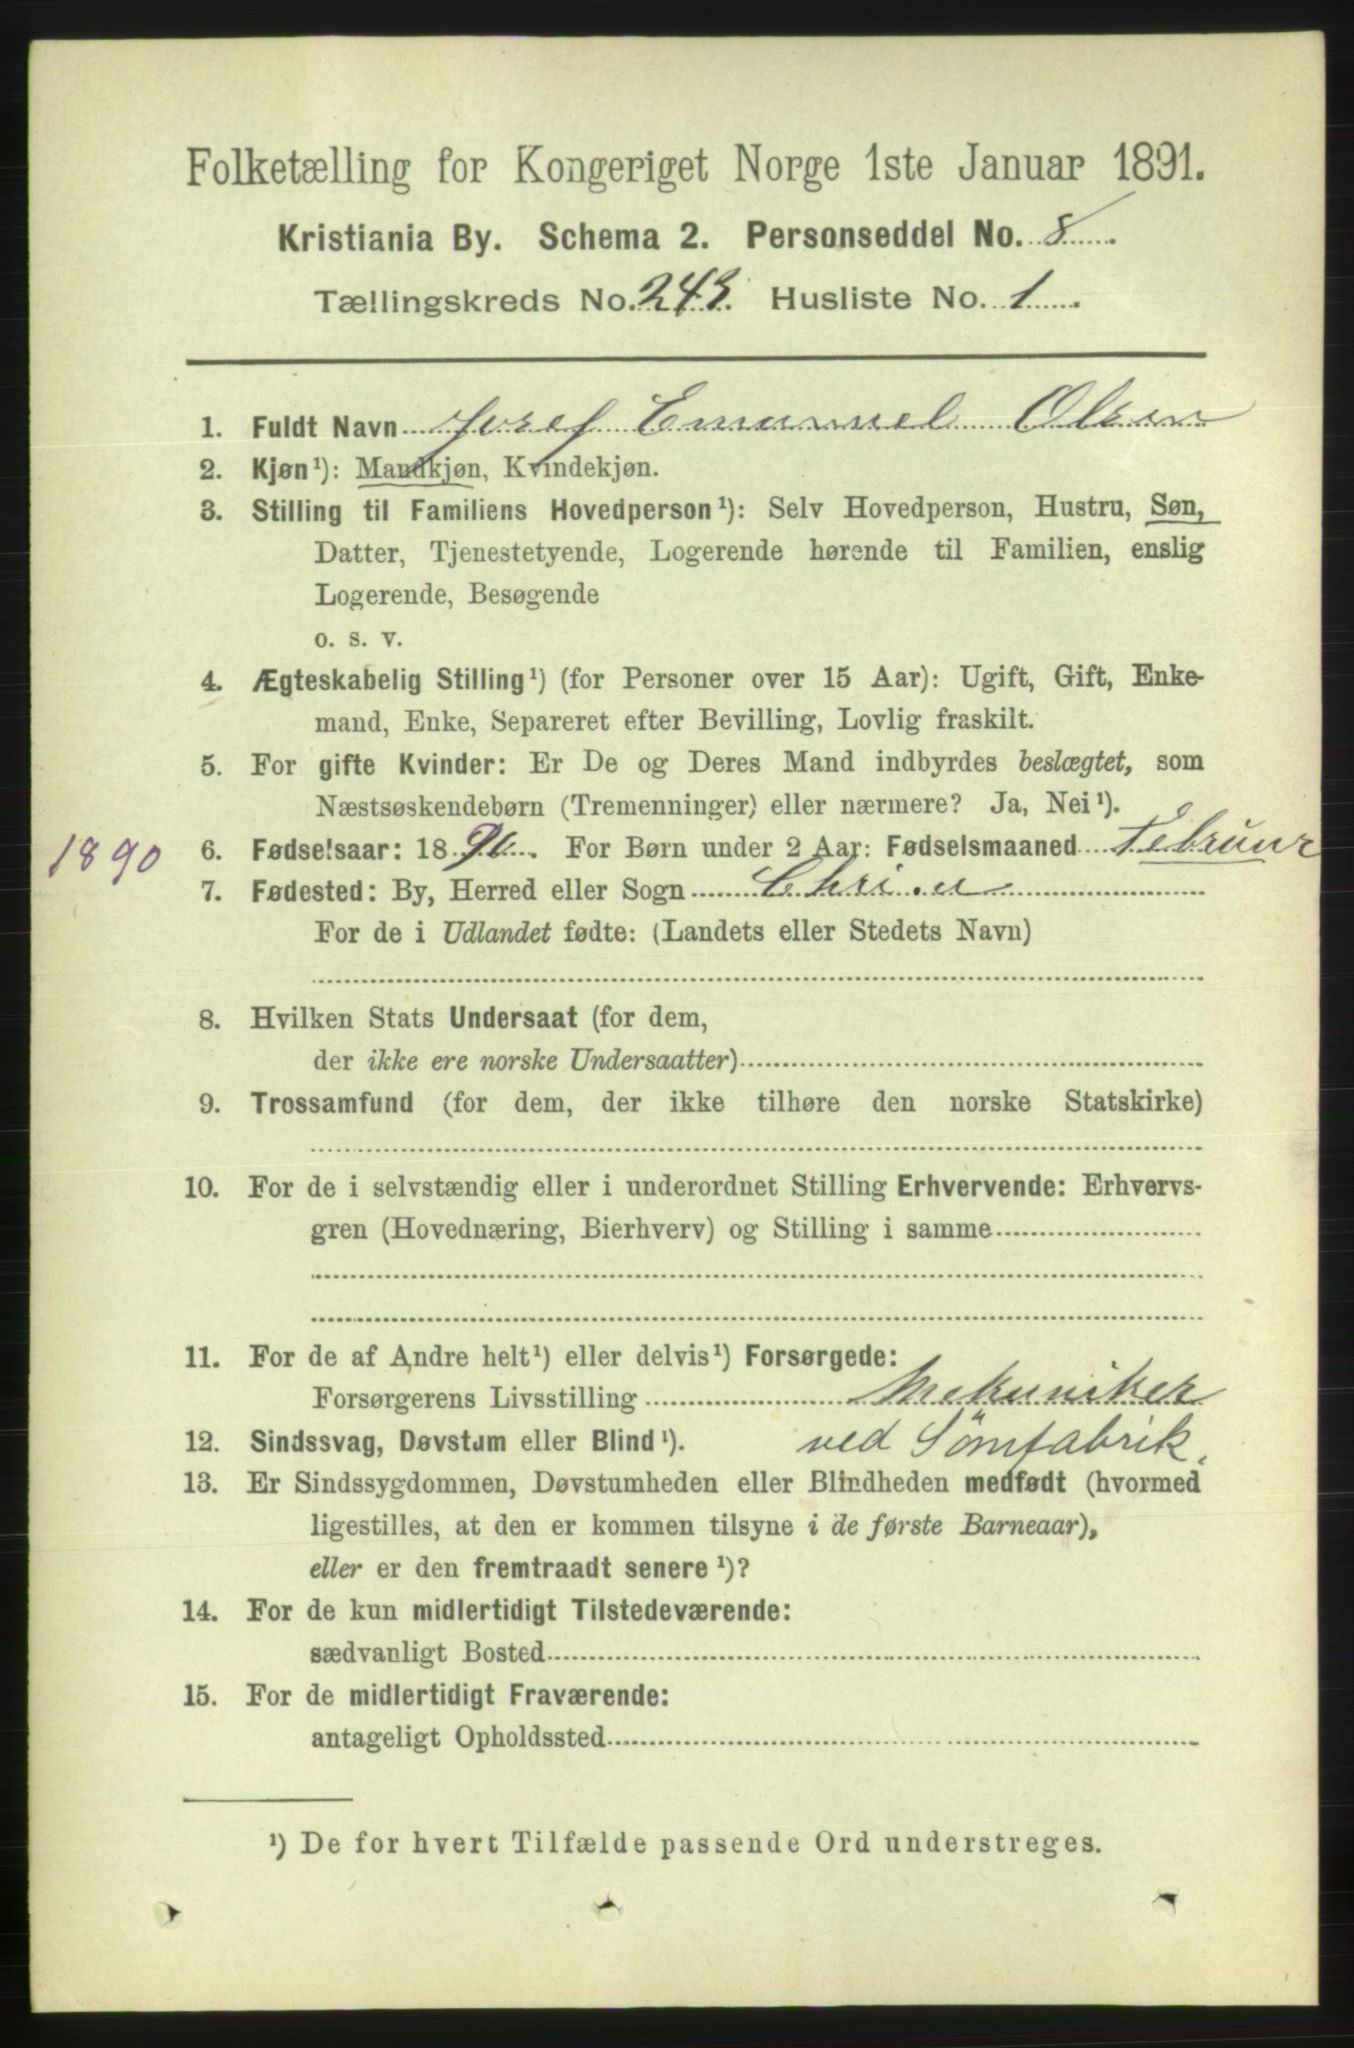 Folketælling for Kongeriget Norge 1ste Januar 1891.
Kristiania By. Schema 2. Personseddel No. 8
Tællingskreds No. 243. Husliste No. 1
1. Fuldt Navn Josef Emanuel Olsen
2. Kjøn¹): Mandkjøn, Kvindekjøn.
3. Stilling til Familiens Hovedperson¹): Selv Hovedperson, Hustru, Søn,
Datter, Tjenestetyende, Logerende hørende til Familien, enslig
Logerende, Besøgende
o. s. v.
4. Ægteskabelig Stilling¹) (for Personer over 15 Aar): Ugift, Gift, Enke-
mand, Enke, Separeret efter Bevilling, Lovlig fraskilt.
5. For gifte Kvinder: Er De og Deres Mand indbyrdes beslægtet, som
Næstsøskendebørn (Tremenninger) eller nærmere? Ja, Nei¹).
1890 6. Fødselsaar: 1890. For Børn under 2 Aar: Fødselsmaaned Februar
7. Fødested: By, Herred eller Sogn Chri.a
For de i Udlandet fødte: (Landets eller Stedets Navn)
8. Hvilken Stats Undersaat (for dem,
der ikke ere norske Undersaatter)
9. Trossamfund (for dem, der ikke tilhøre den norske Statskirke)
10. For de i selvstændig eller i underordnet Stilling Erhvervende: Erhvervs-
gren (Hovednæring, Bierhverv) og Stilling i samme
11. For de af Andre helt¹) eller delvis¹) Forsørgede:
Forsørgerens Livsstilling Mekaniker
12. Sindssvag, Døvstum eller Blind¹). ved Sömfabrik.
13. Er Sindssygdommen, Døvstumheden eller Blindheden medfødt (hvormed
ligestilles, at den er kommen tilsyne i de første Barneaar),
eller er den fremtraadt senere¹)?
14. For de kun midlertidigt Tilstedeværende:
sædvanligt Bosted
15. For de midlertidigt Fraværende:
antageligt Opholdssted
¹) De for hvert Tilfælde passende Ord understreges.